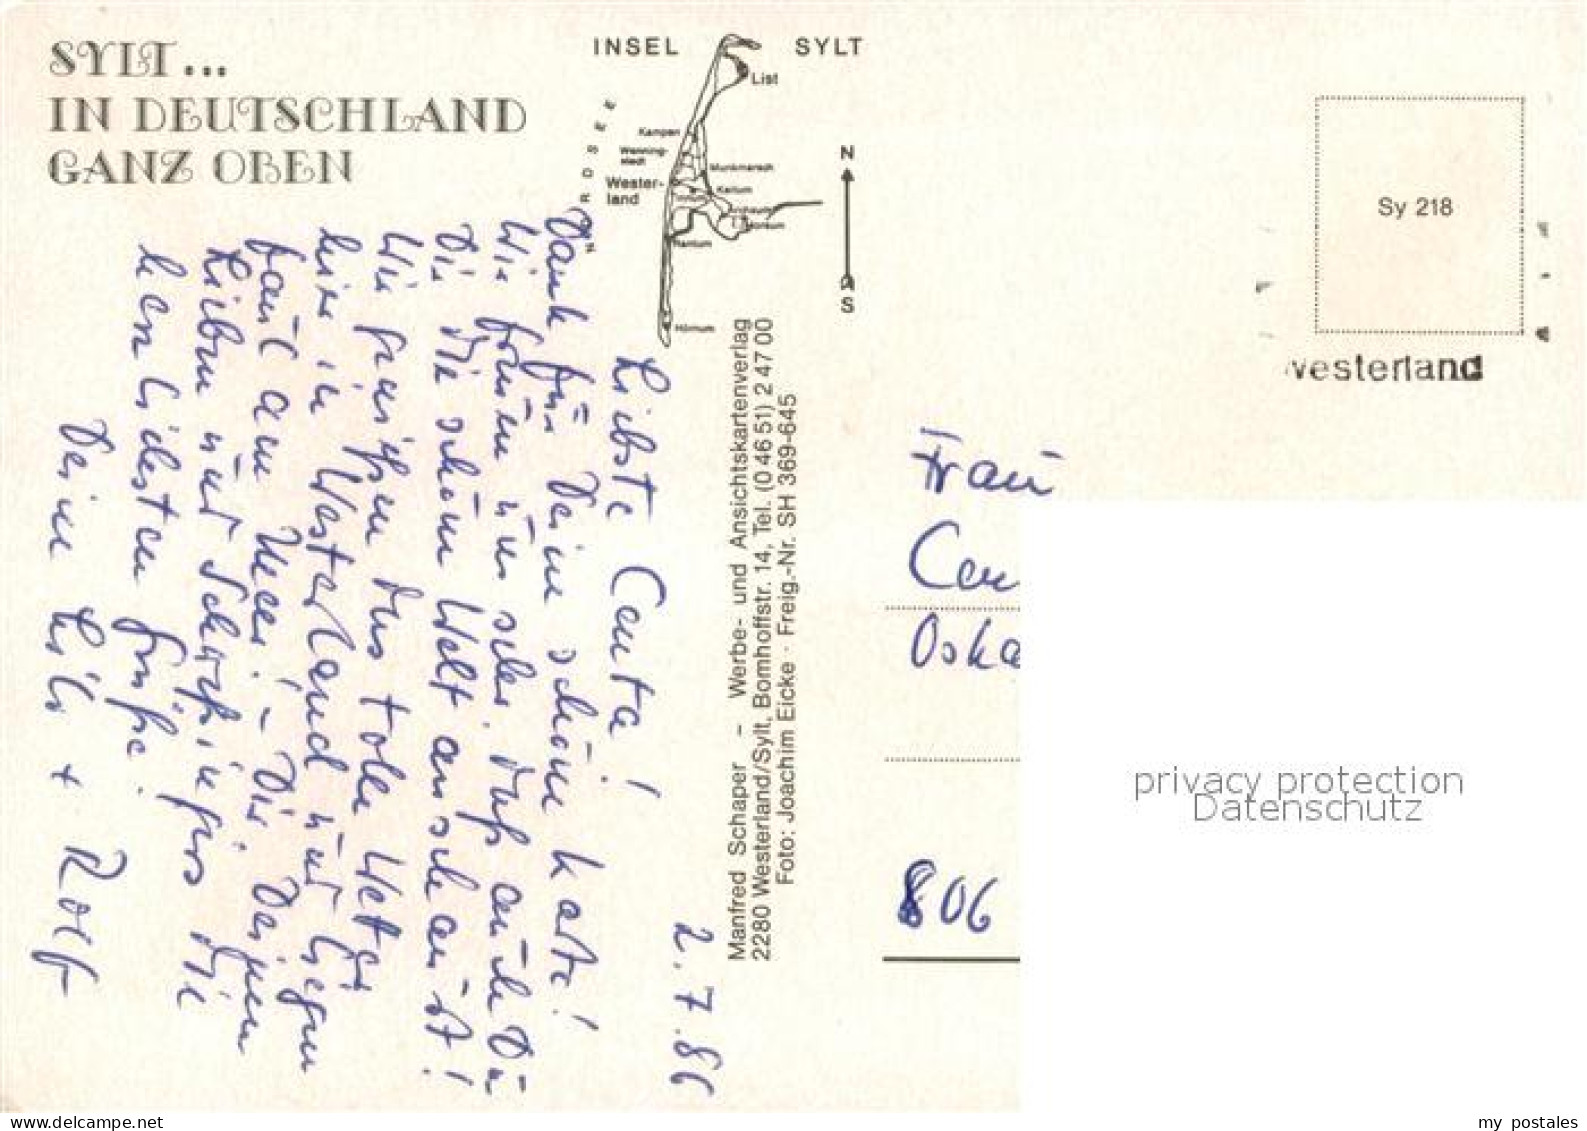 SYLT...
IN DEUTSCHLAND
GANZ OBEN
INSEL SYLT
List
Kampen
Wenning-
stedt
Munkmarsch
Wester-
land
Keitum
Tinnum
Archsum
Morsum
Rantum
Hörnum
NORDSEE
N
S
Sy 218
Westerland
Manfred Schaper – Werbe- und Ansichtskartenverlag
2280 Westerland/Sylt, Bomhoffstr. 14, Tel. (0 46 51) 2 47 00
Foto: Joachim Eicke · Freig.-Nr. SH 369-645
2.7.86
Liebste Centa!
Dank für Deine schöne Karte!
Wir freuen uns sehr, daß auch Du
Dir die schöne Welt anschaust!
Wir genießen das tolle Wetter
hier in Westerland und liegen
faul am Meer. – Dir, Deinen
Lieben und
herzlichsten Grüße.
Deine Lilo + Rolf
Frau
Cen
Oska
806
privacy protection
Datenschutz
delcampe.net
my_postales